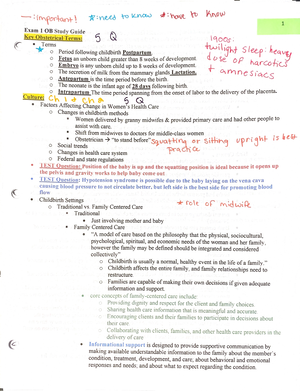 → :important! *:need to know *:have to know
1
Exam 1 OB Study Guide
Key Obstetrical Terms: 5 Q
• Terms
o Period following childbirth Postpartum
o Fetus an unborn child greater than 8 weeks of development.
o Embryo is any unborn child up to 8 weeks of development.
o The secretion of milk from the mammary glands Lactation.
o Antepartum is the time period before the birth
o The neonate is the infant age of 28 days following birth
o Intrapartum The time period spanning from the onset of labor to the delivery of the placenta.
1900s:
twilight sleep heavy
use of narcotics
+ amnesiacs
Culture: Ch 1 & Ch 2 5 Q
• Factors Affecting Change in Women's Health Care
o Changes in childbirth methods
▪ Women delivered by granny midwifes & provided primary care and had other people to
assist with care.
▪ Shift from midwives to doctors for middle-class women
▪ Obstetrician → "to stand before" squatting or sitting upright is best
practice
o Social trends
o Changes in health care system
o Federal and state regulations
• TEST Question: Position of the baby is up and the squatting position is ideal because it opens up
the pelvis and gravity works to help baby come out
• TEST Question: Hypotension syndrome is possible due to the baby laying on the vena cava
causing blood pressure to not circulate better, but left side is the best side for promoting blood
flow
• Childbirth Settings * role of midwife
o Traditional vs. Family Centered Care
▪ Traditional
• Just involving mother and baby
▪ Family Centered Care
• "A model of care based on the philosophy that the physical, sociocultural,
psychological, spiritual, and economic needs of the woman and her family,
however the family may be defined should be integrated and considered
collectively"
o Childbirth is usually a normal, healthy event in the life of a family."
o Childbirth affects the entire family, and family relationships need to
restructure.
o Families are capable of making their own decisions if given adequate
information and support.
• core concepts of family-centered care include:
o Providing dignity and respect for the client and family choices
o Sharing health care information that is meaningful and accurate
o Encouraging clients and their families to participate in decisions about
their care
o Collaborating with clients, families, and other health care providers in the
delivery of care
• Informational support is designed to provide supportive communication by
making available understandable information to the family about the member's
condition, treatment, development, and care; about behavioral and emotional
responses and needs; and about what to expect regarding the condition.